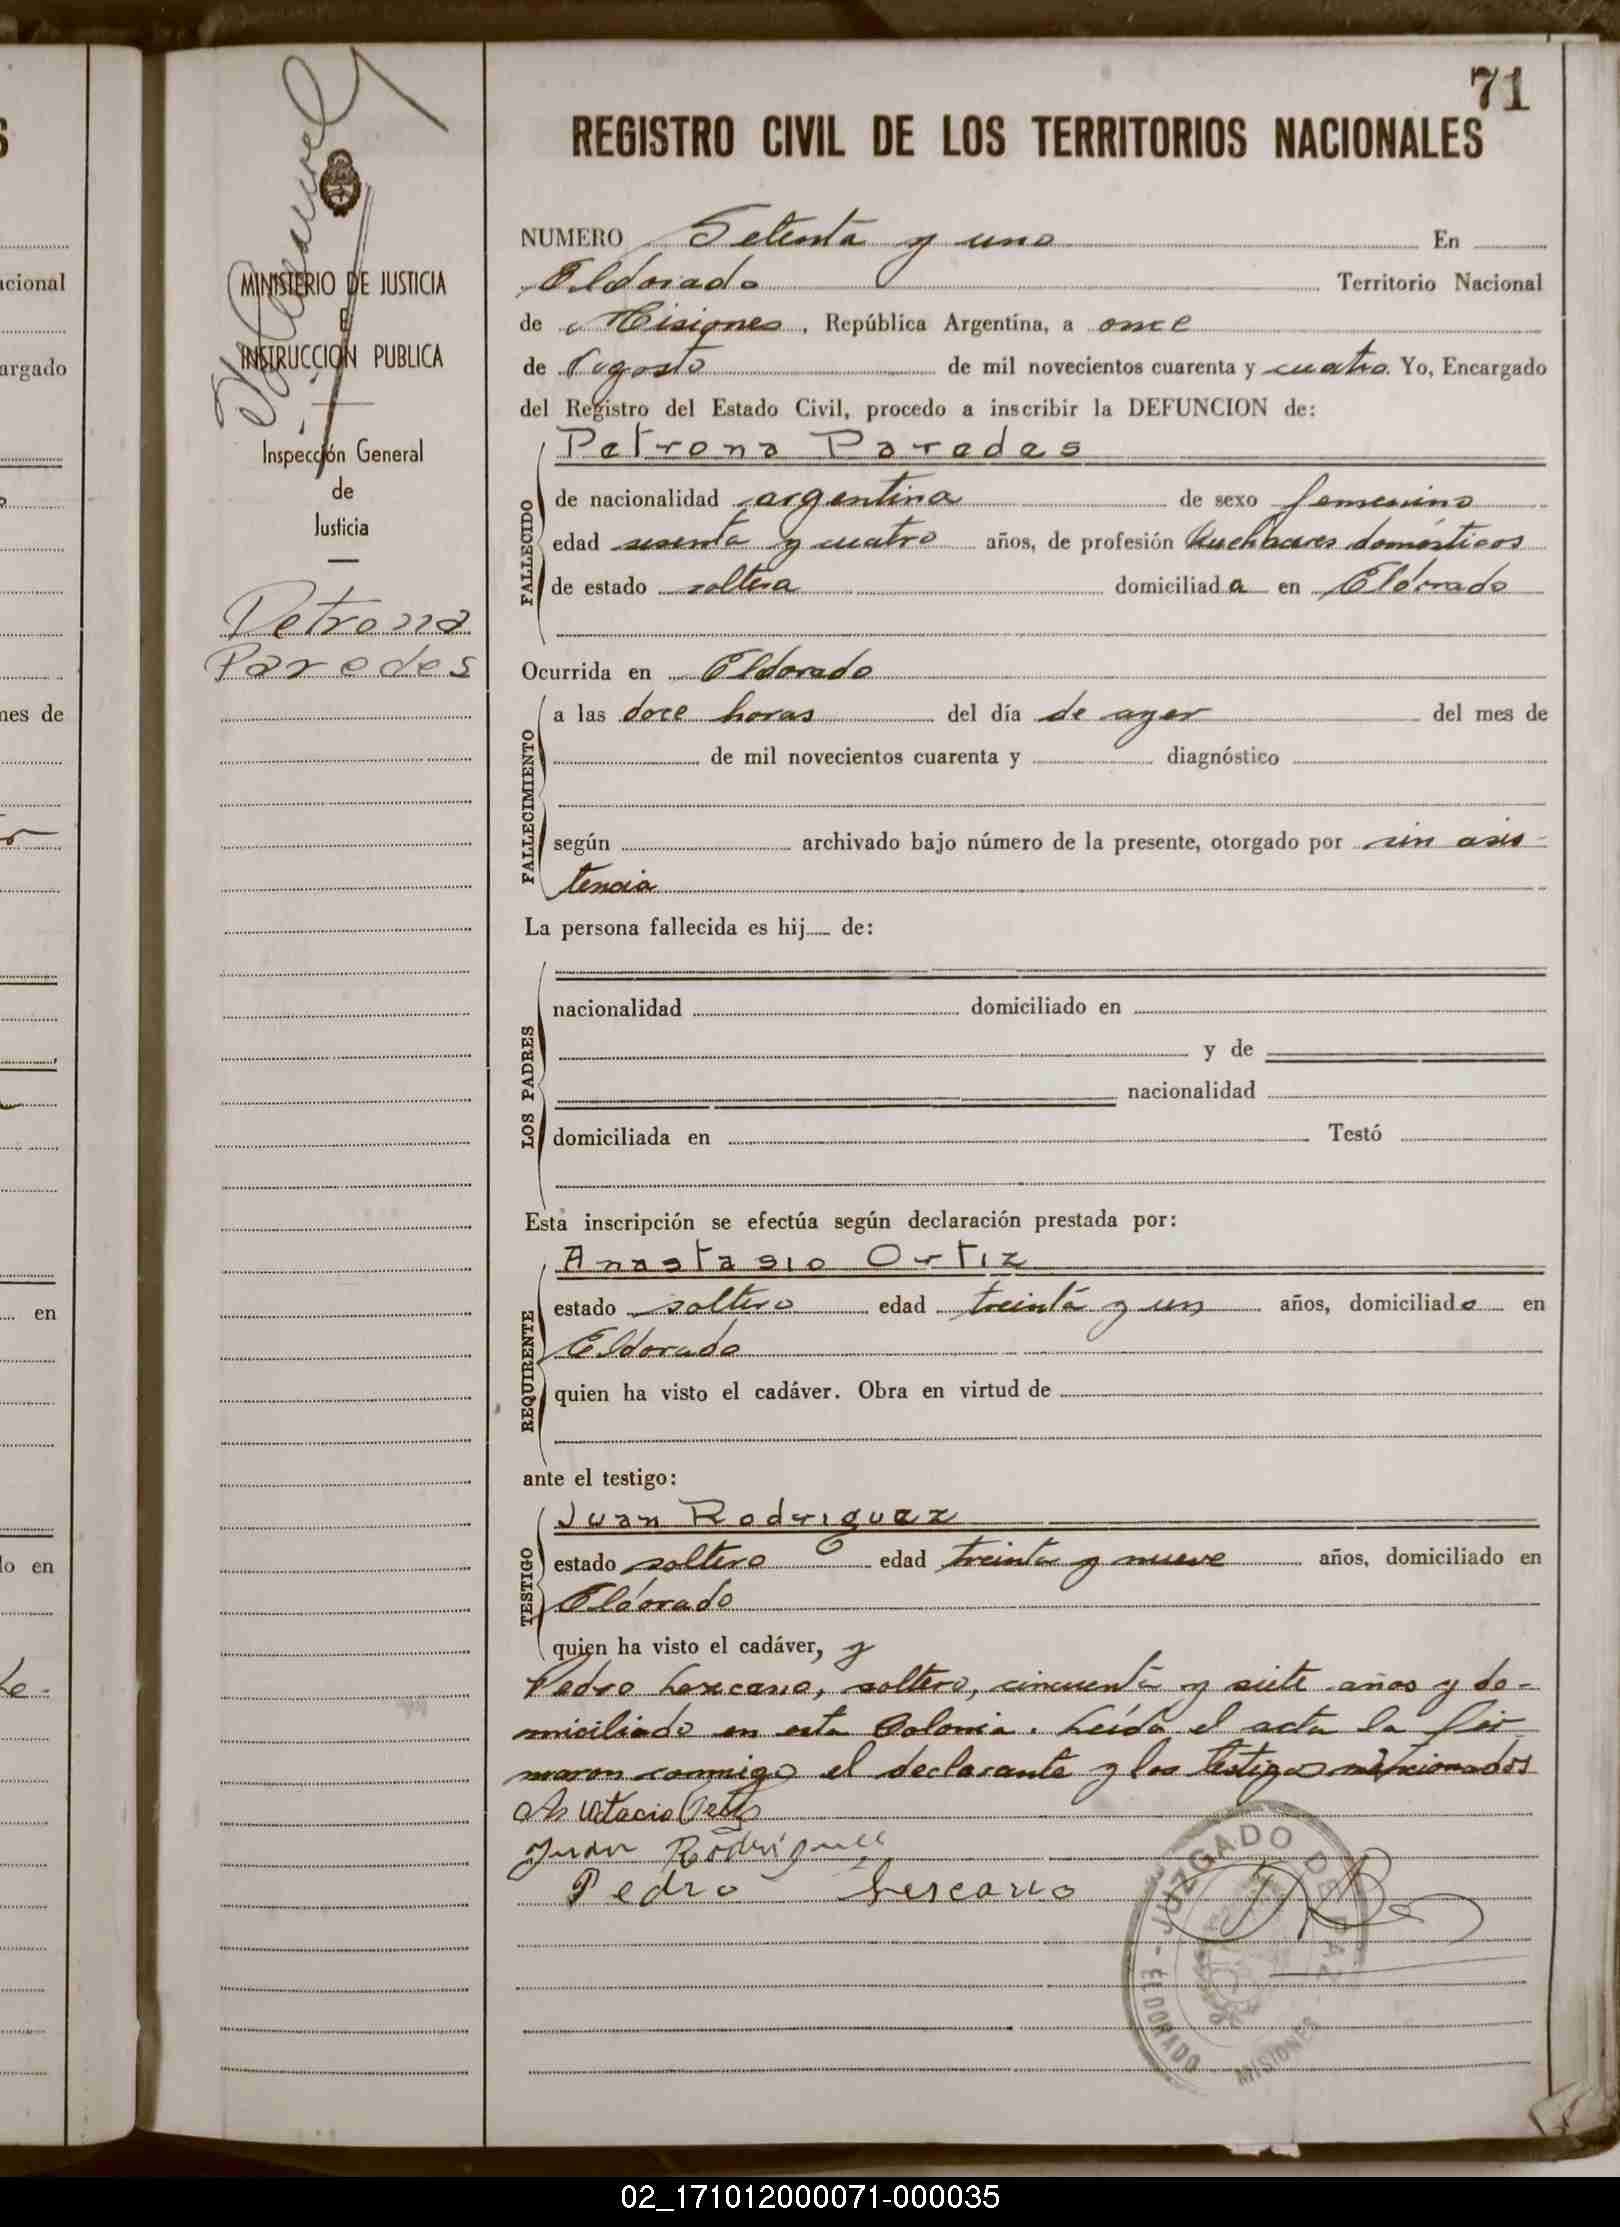 71
REGISTRO CIVIL DE LOS TERRITORIOS NACIONALES
MINISTERIO DE JUSTICIA
E
INSTRUCCION PUBLICA
Inspección General
de
Justicia
Petrona
Paredes
NUMERO Setenta y uno En
Eldorado Territorio Nacional
de Misiones, República Argentina, a once
de Agosto de mil novecientos cuarenta y cuatro. Yo, Encargado
del Registro del Estado Civil, procedo a inscribir la DEFUNCION de:
FALLECIDO
Petrona Paredes
de nacionalidad argentina de sexo femenino
edad sesenta y cuatro años, de profesión quehaceres domésticos
de estado soltera domiciliada en Eldorado
Ocurrida en Eldorado
FALLECIMIENTO
a las doce horas del día de ayer del mes de
de mil novecientos cuarenta y diagnóstico
según archivado bajo número de la presente, otorgado por sin asis-
tencia
La persona fallecida es hij de:
LOS PADRES
nacionalidad domiciliado en
y de
nacionalidad
domiciliada en Testó
Esta inscripción se efectúa según declaración prestada por:
REQUIRENTE
Anastasio Ortiz
estado soltero edad treinta y un años, domiciliado en
Eldorado
quien ha visto el cadáver. Obra en virtud de
ante el testigo:
TESTIGO
Juan Rodriguez
estado soltero edad treinta y nueve años, domiciliado en
Eldorado
quien ha visto el cadáver, y
Pedro Lezcano, soltero, cincuenta y siete años y do-
miciliado en esta Colonia. Leída el acta la fir-
maron conmigo el declarante y los testigos mencionados
Juan Rodriguez
Pedro Lescano
JUZGADO DE PAZ
- ELDORADO - MISIONES
acional
argado
nes de
en
lo en
02_171012000071-000035